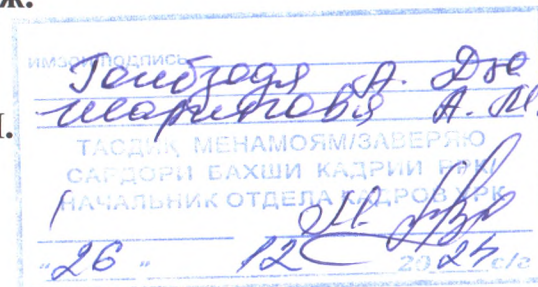 ж.
ИМЗОИ/ПОДПИСЬ
Гоибзода А. Дж
Шарипова А. М.
ТАСДИҚ МЕНАМОЯМ/ЗАВЕРЯЮ
САРДОРИ БАХШИ КАДРИИ
НАЧАЛЬНИК ОТДЕЛА КАДРОВ
"26" 12 2024 с/г